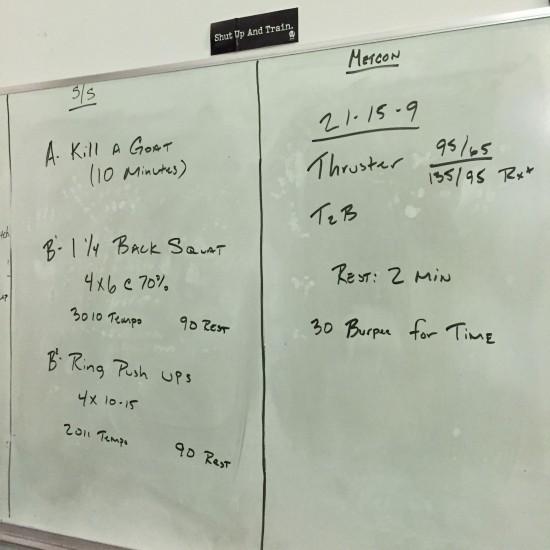 Shut Up And Train.
S/S
A. Kill A Goat
(10 Minutes)
B'. 1 1/4 Back Squat
4x6 @ 70%
3010 Tempo 90 Rest
B². Ring Push ups
4x 10-15
2011 Tempo 90 Rest
Metcon
21-15-9
Thruster 95/65
135/95 Rx+
T2B
Rest: 2 Min
30 Burpee for Time